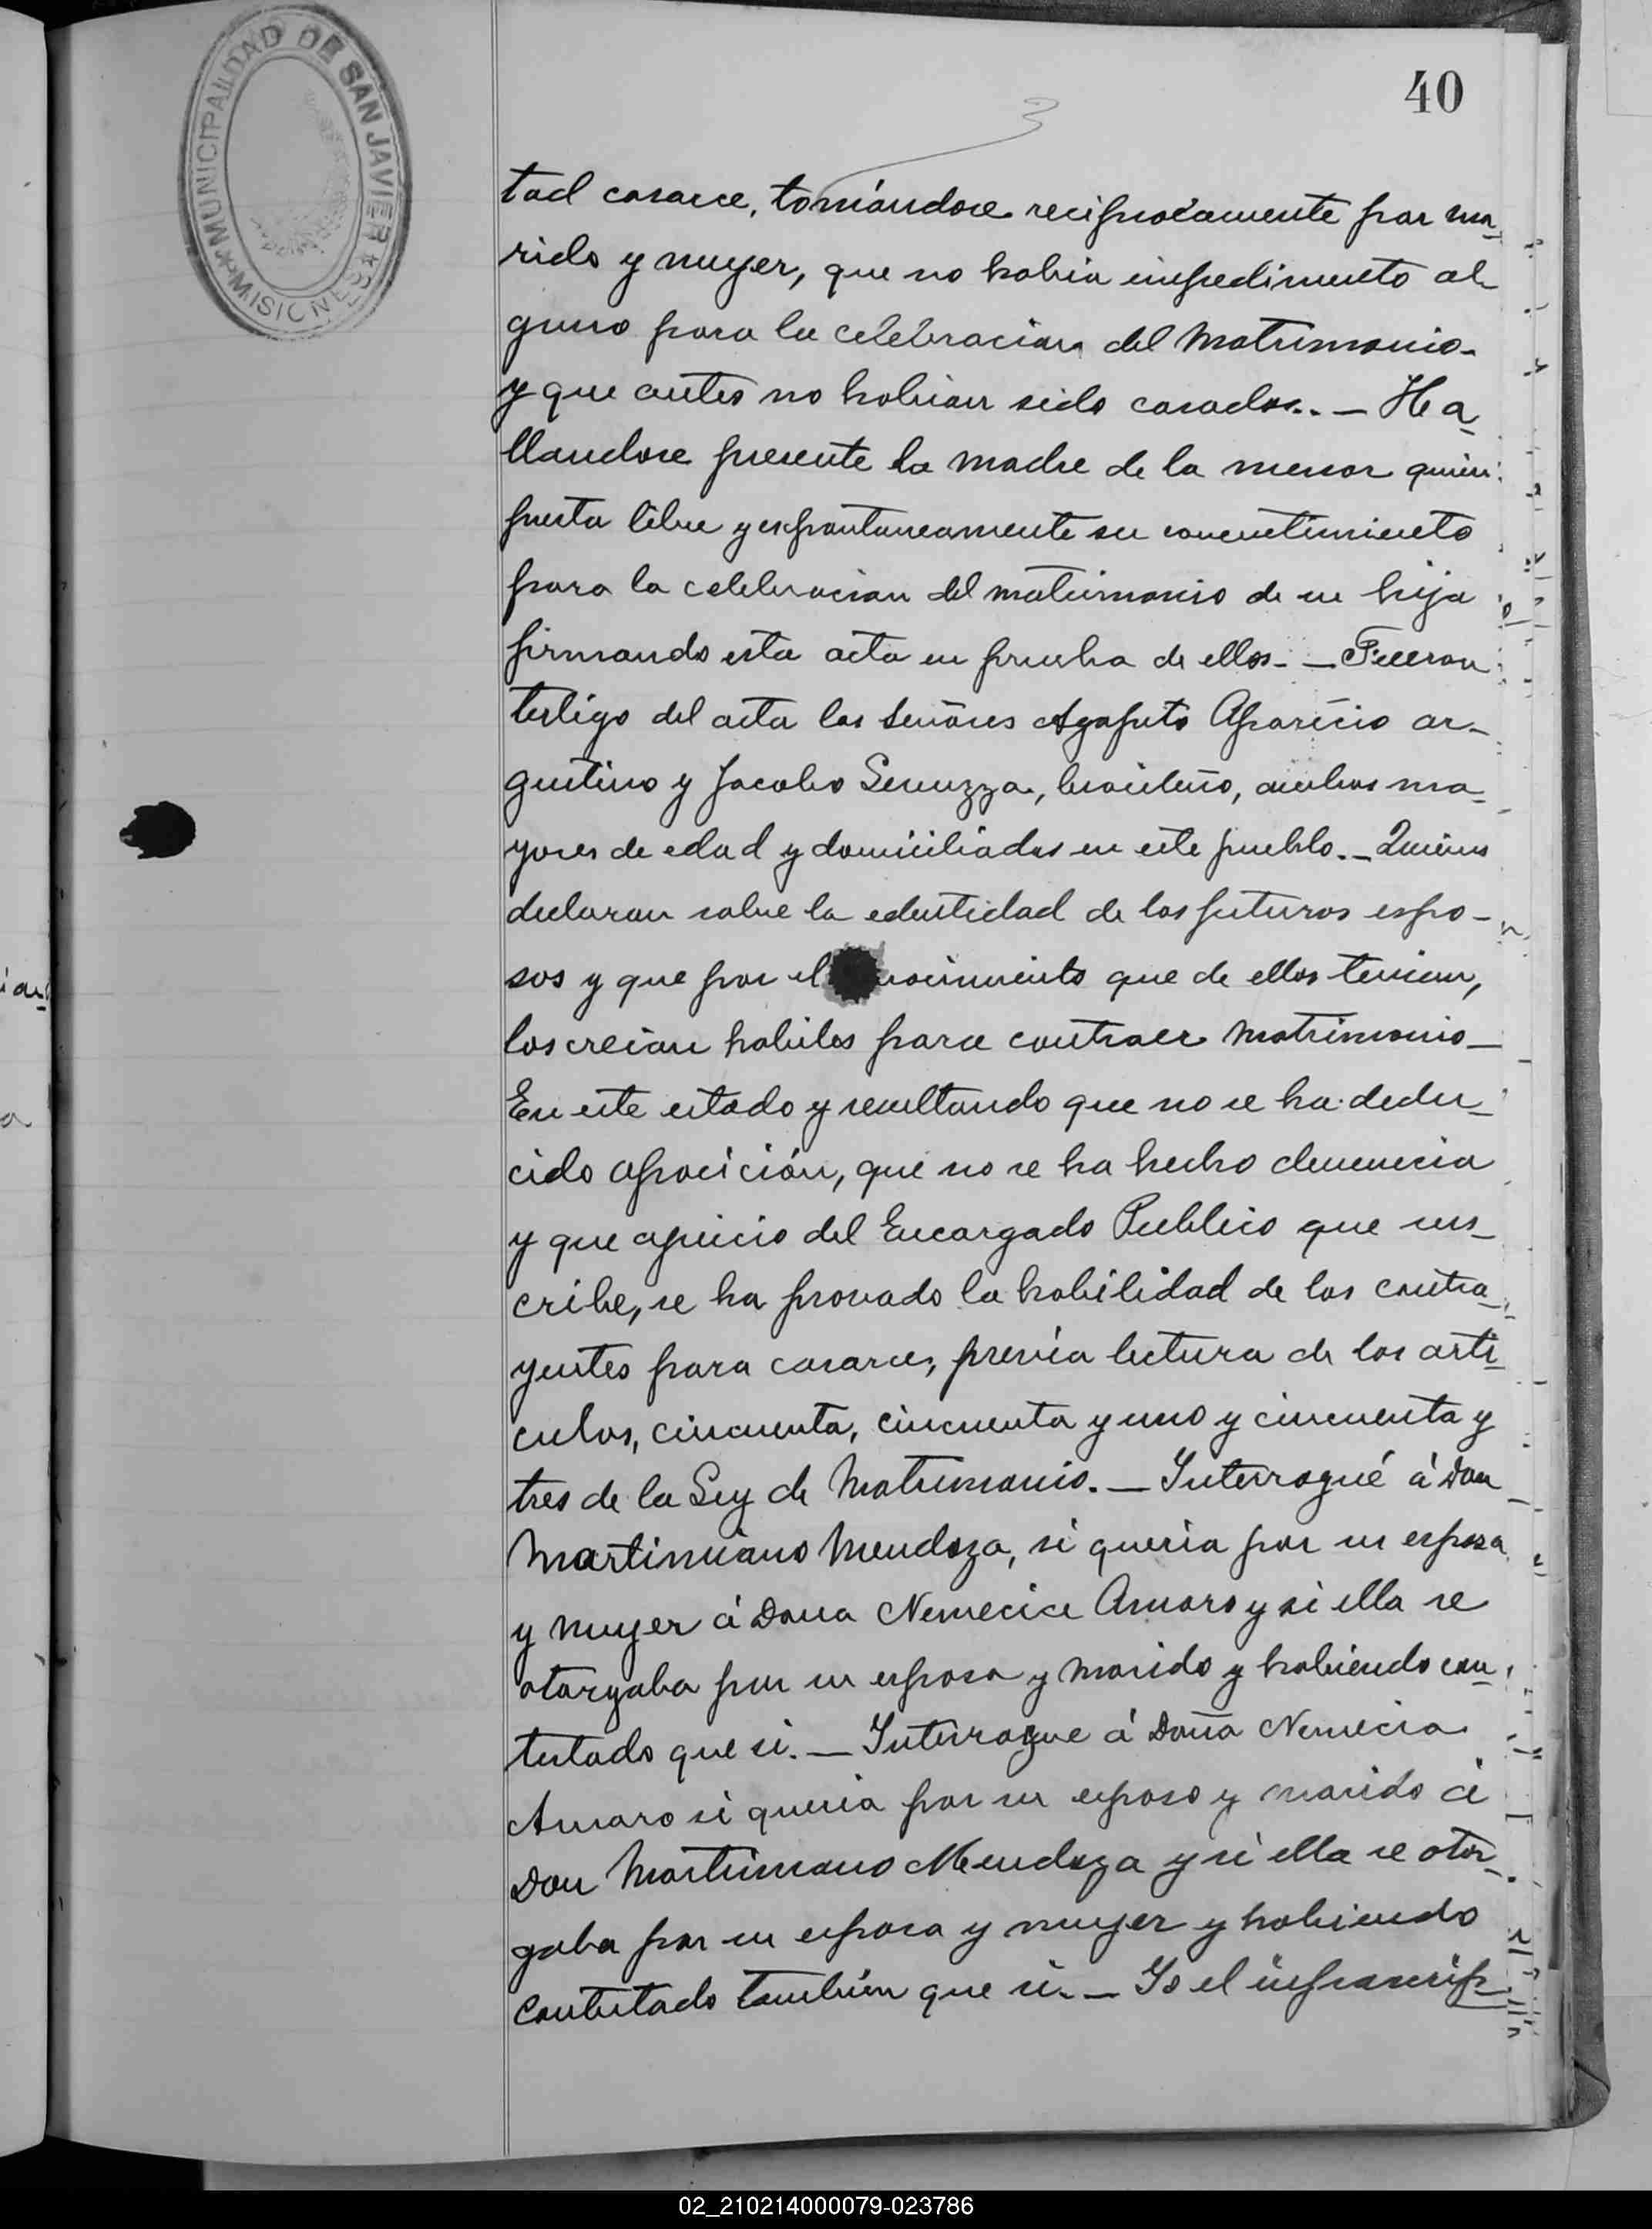 MUNICIPALIDAD DE SAN JAVIER
MISIONES
40
tad casarce, tomándose reciprocamente por ma_
rido y muyer, que no habia impedimento al_
guno para la celebracion del Matrimonio_
y que antes no habian sido casados.. _ Ha_
llandose presente la madre de la menor quien
presta libre y espontaneamente su concentimiento
para la celebracion del matrimonio de su hija
firmando esta acta en prueba de ellos _ Fueron
testigo del acta los señores Agapito Aparicio ar_
gentino y Jacobo , brasileño, ambos ma_
yores de edad y domiciliados en este pueblo._ Quienes
declaran sobre la edentidad de los futuros espo_
sos y que por el nocimiento que de ellos tenian,
los creian habiles para contraer Matrimonio_
En este estado y resultando que no se ha dedu_
cido oposición, que no se ha hecho denuncia
y que ajuicio del Encargado Publico que sus_
cribe, se ha provado la habilidad de los contra_
yentes para casarce, previa lectura de los arti_
culos, cincuenta, cincuenta y uno y cincuenta y
tres de la Ley de Matrimonio._ Interrogué á Don
Martiniano Mendoza, si queria por su esposa
y muyer á Dona Nemecia Amaro y si ella se
otorgaba por su esposa y marido y habiendo con_
testado que si._ Interrogue á Doña Nemecia
Amaro si queria por su esposo y marido á
Don Martiniano Mendoza y si ella se otor_
gaba por su esposa y muyer y habiendo
contestado también que si._ Yo el infrascrip_
02_210214000079-023786